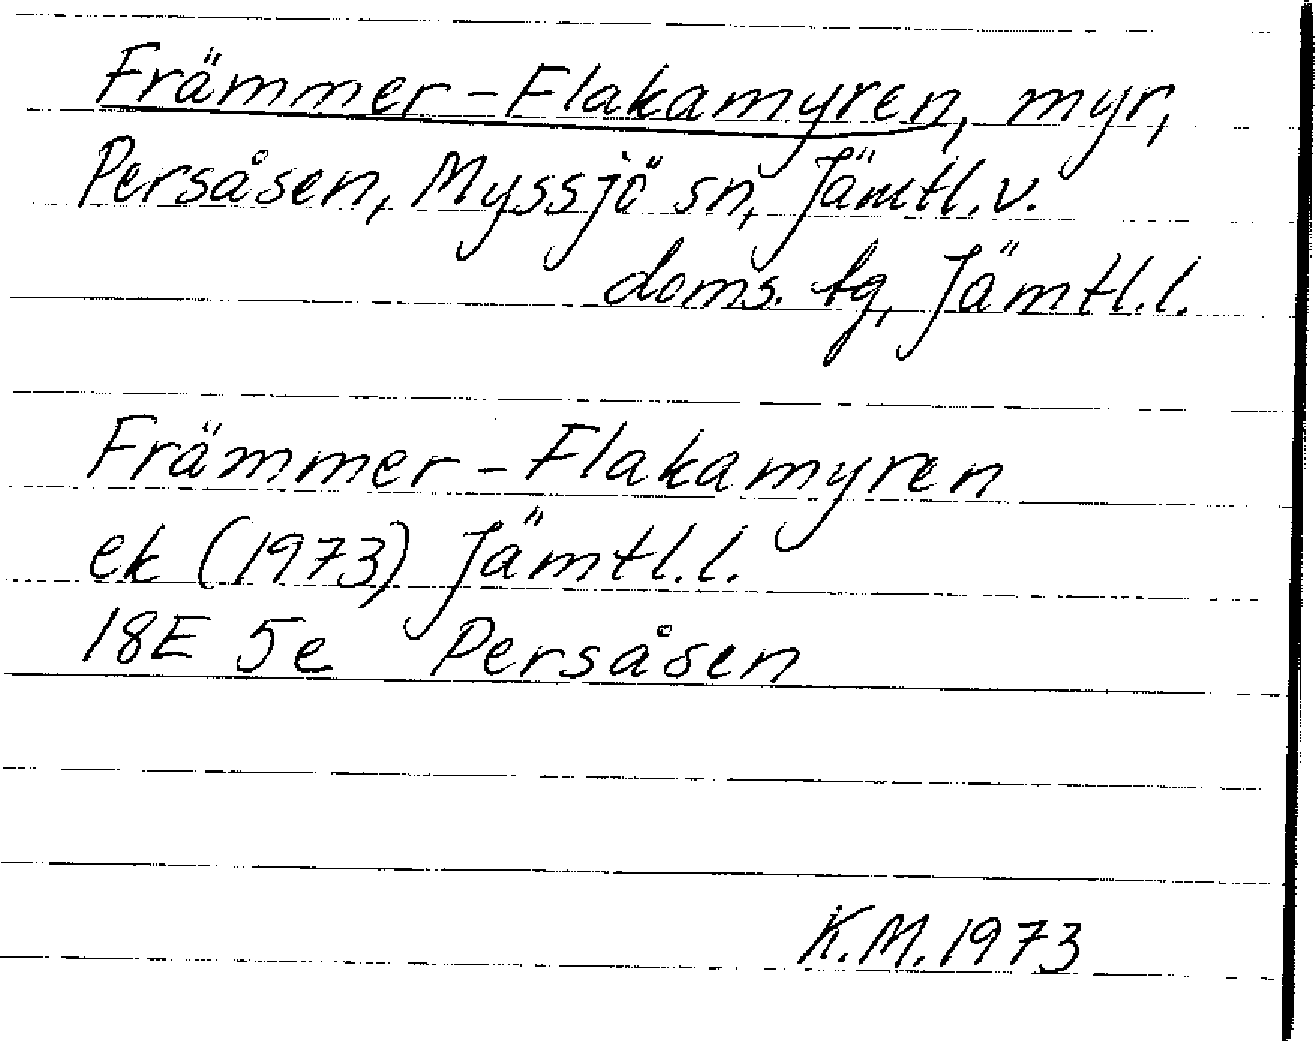 Främmer-Flakamyren, myr,
Persåsen, Myssjö sn, Jämtl.v.
doms. tg, Jämtl.l.
Främmer-Flakamyren
ek (1973) Jämtl.l.
18E 5e Persåsen
K.M.1973